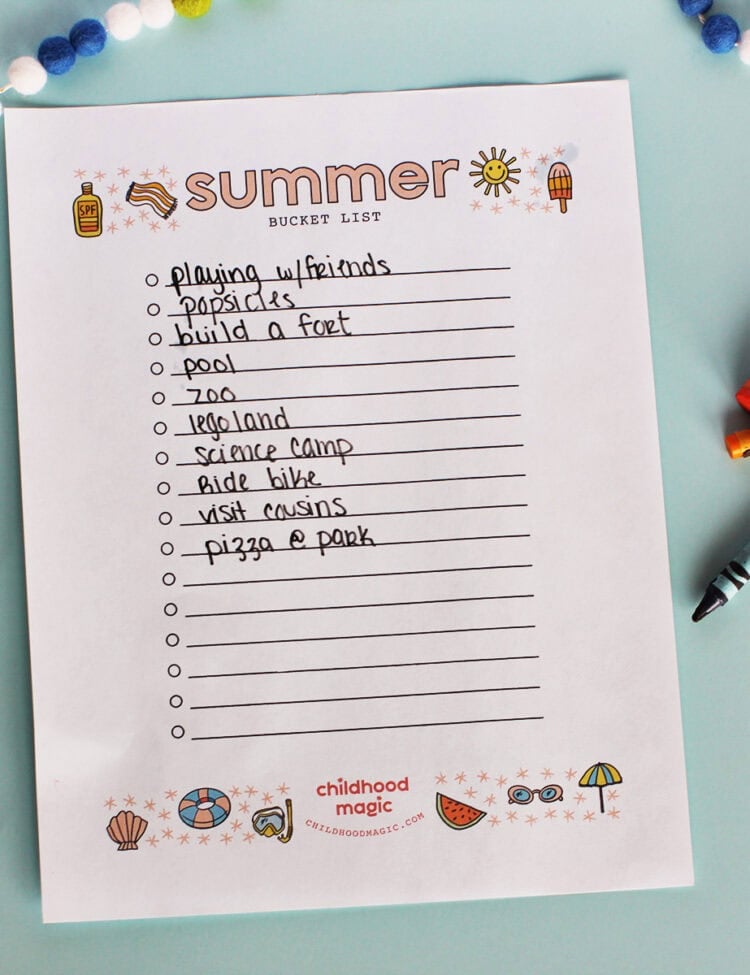 SPF
summer
BUCKET LIST
playing w/friends
popsicles
build a fort
pool
zoo
legoland
science camp
Ride bike
visit cousins
pizza @ park
childhood
magic
CHILDHOODMAGIC.COM